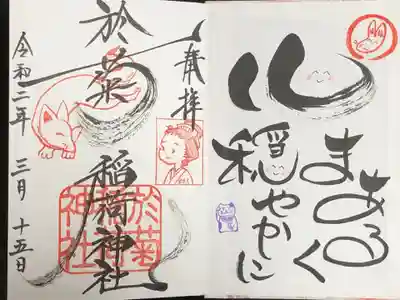 心
まあるく
穏やかに
奉拝
於菊稲荷神社
令和二年三月十五日
於菊
神社